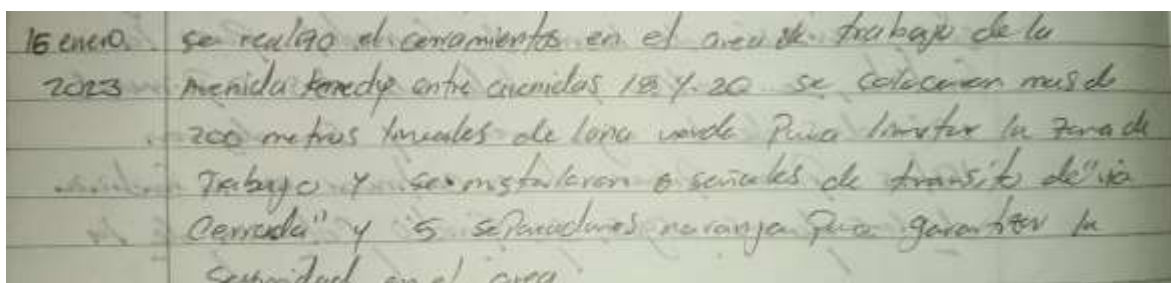 16 enero. se realizo el cerramientos en el area de trabajo de la
2023 Avenida kenedy entre avenidas 18 y 20 se colocaron mas de
200 metros lineales de lona verde Para limitar la zona de
Trabajo y se instalaron 6 señales de transito de "via
Cerrada" y 5 separadores naranja Para garantizar la
seguridad en el area